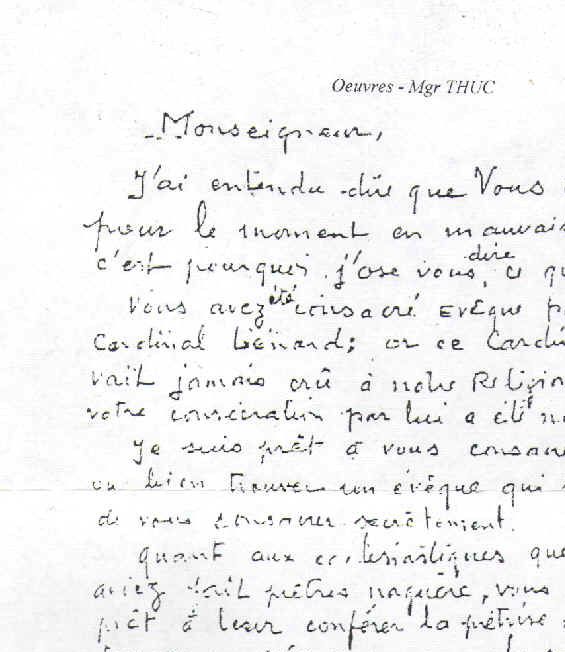 Oeuvres - Mgr THUC
Monseigneur,
J'ai entendu dire que Vous
pour le moment en mauvais
c'est pourquoi j'ose vous dire ce qu
Vous avez été consacré Evêque p
Cardinal Liénard; or ce Cardi
vait jamais crû à notre Religion
votre consécration par lui a été n
Je suis prêt à vous consacre
ou bien trouver un évêque qui
de vous consacrer secrètement.
Quant aux ecclésiastiques que
aviez fait prêtres naguère, vous
prêt à leur conférer la prêtrise